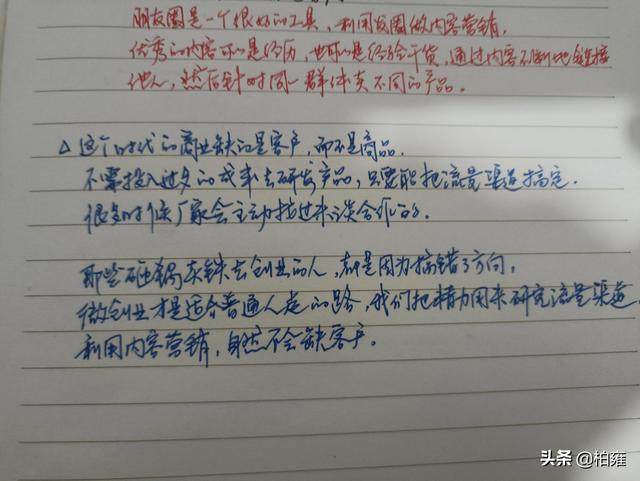 朋友圈是一个很好的工具,利用友圈做内容营销,
优秀的内容可以是经历,也可以是经验干货,通过内容不断地链接
他人,然后针对同一群体卖不同的产品。
△这个时代的商业缺的是客户,而不是商品.
不需投入过多的成本去研发产品,只要能把流量渠道搞定.
很多时候厂家会主动找过来谈合作的.
那些砸锅卖铁去创业的人,就是因为搞错了方向,
做创业才是适合普通人走的路,我们把精力用来研究流量渠道
利用内容营销,自然不会缺客户。
头条 @柏雍